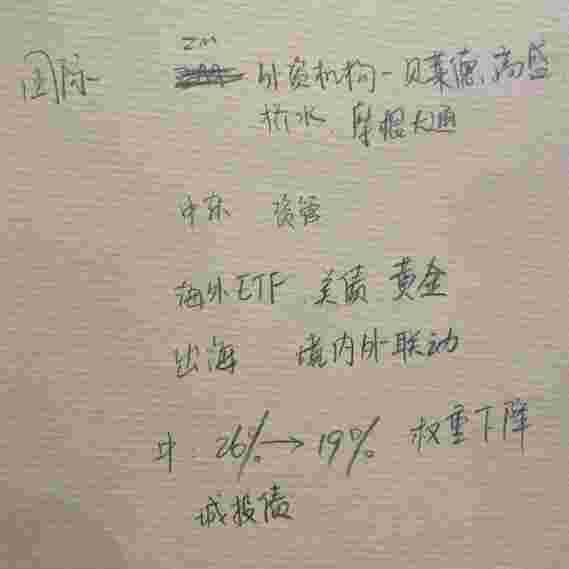 国际 外资机构-贝莱德、高盛
桥水、摩根大通
中东 资管
海外ETF 美债 黄金
出海 境内外联动
中 26%→19% 权重下降
城投债